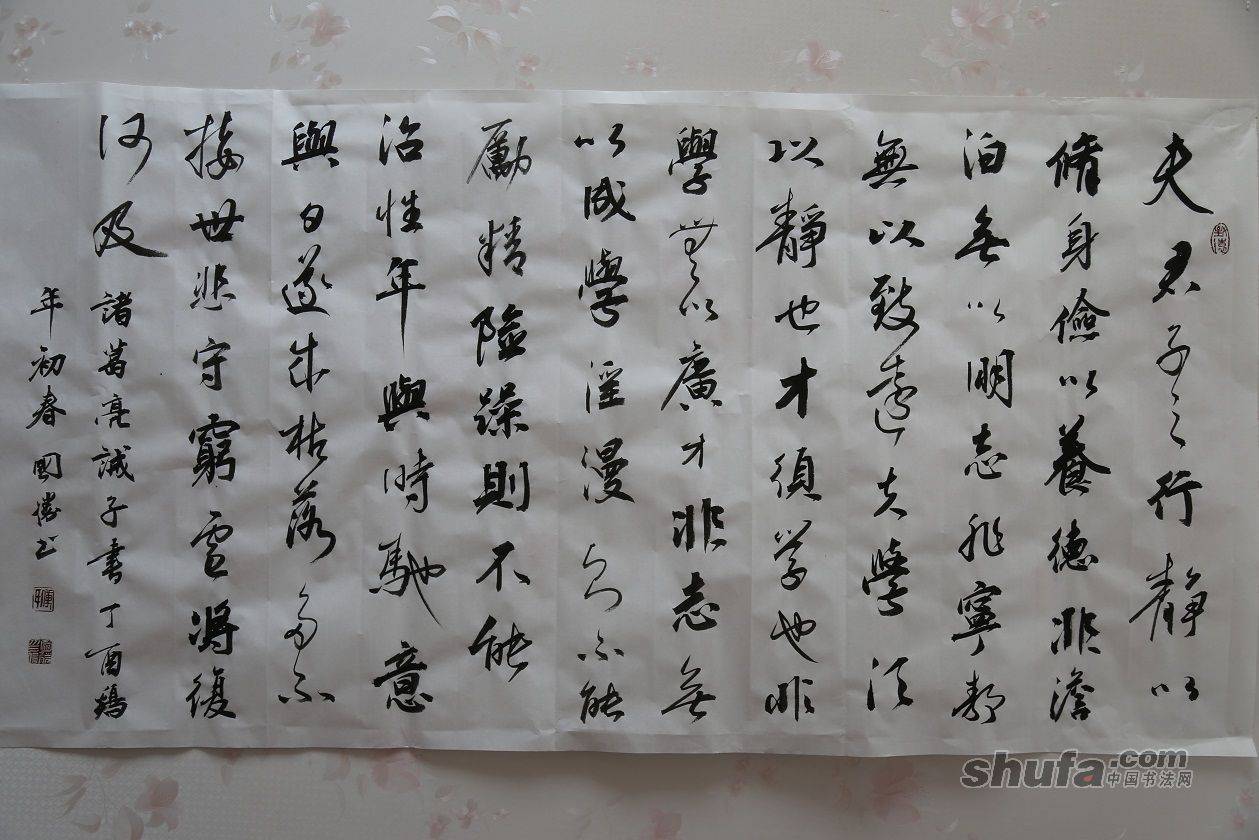 夫君子之行靜以
脩身儉以養德非澹
泊無以明志非寧靜
無以致遠夫學須
以靜也才須学也非
學無以廣才非志無
以成學淫漫則不能
勵精險躁則不能
治性年與時馳意
與日遂成枯落多不
接世悲守窮廬將復
何及 諸葛亮誡子書丁酉鷄
年初春國书
shufa.com
中国书法网